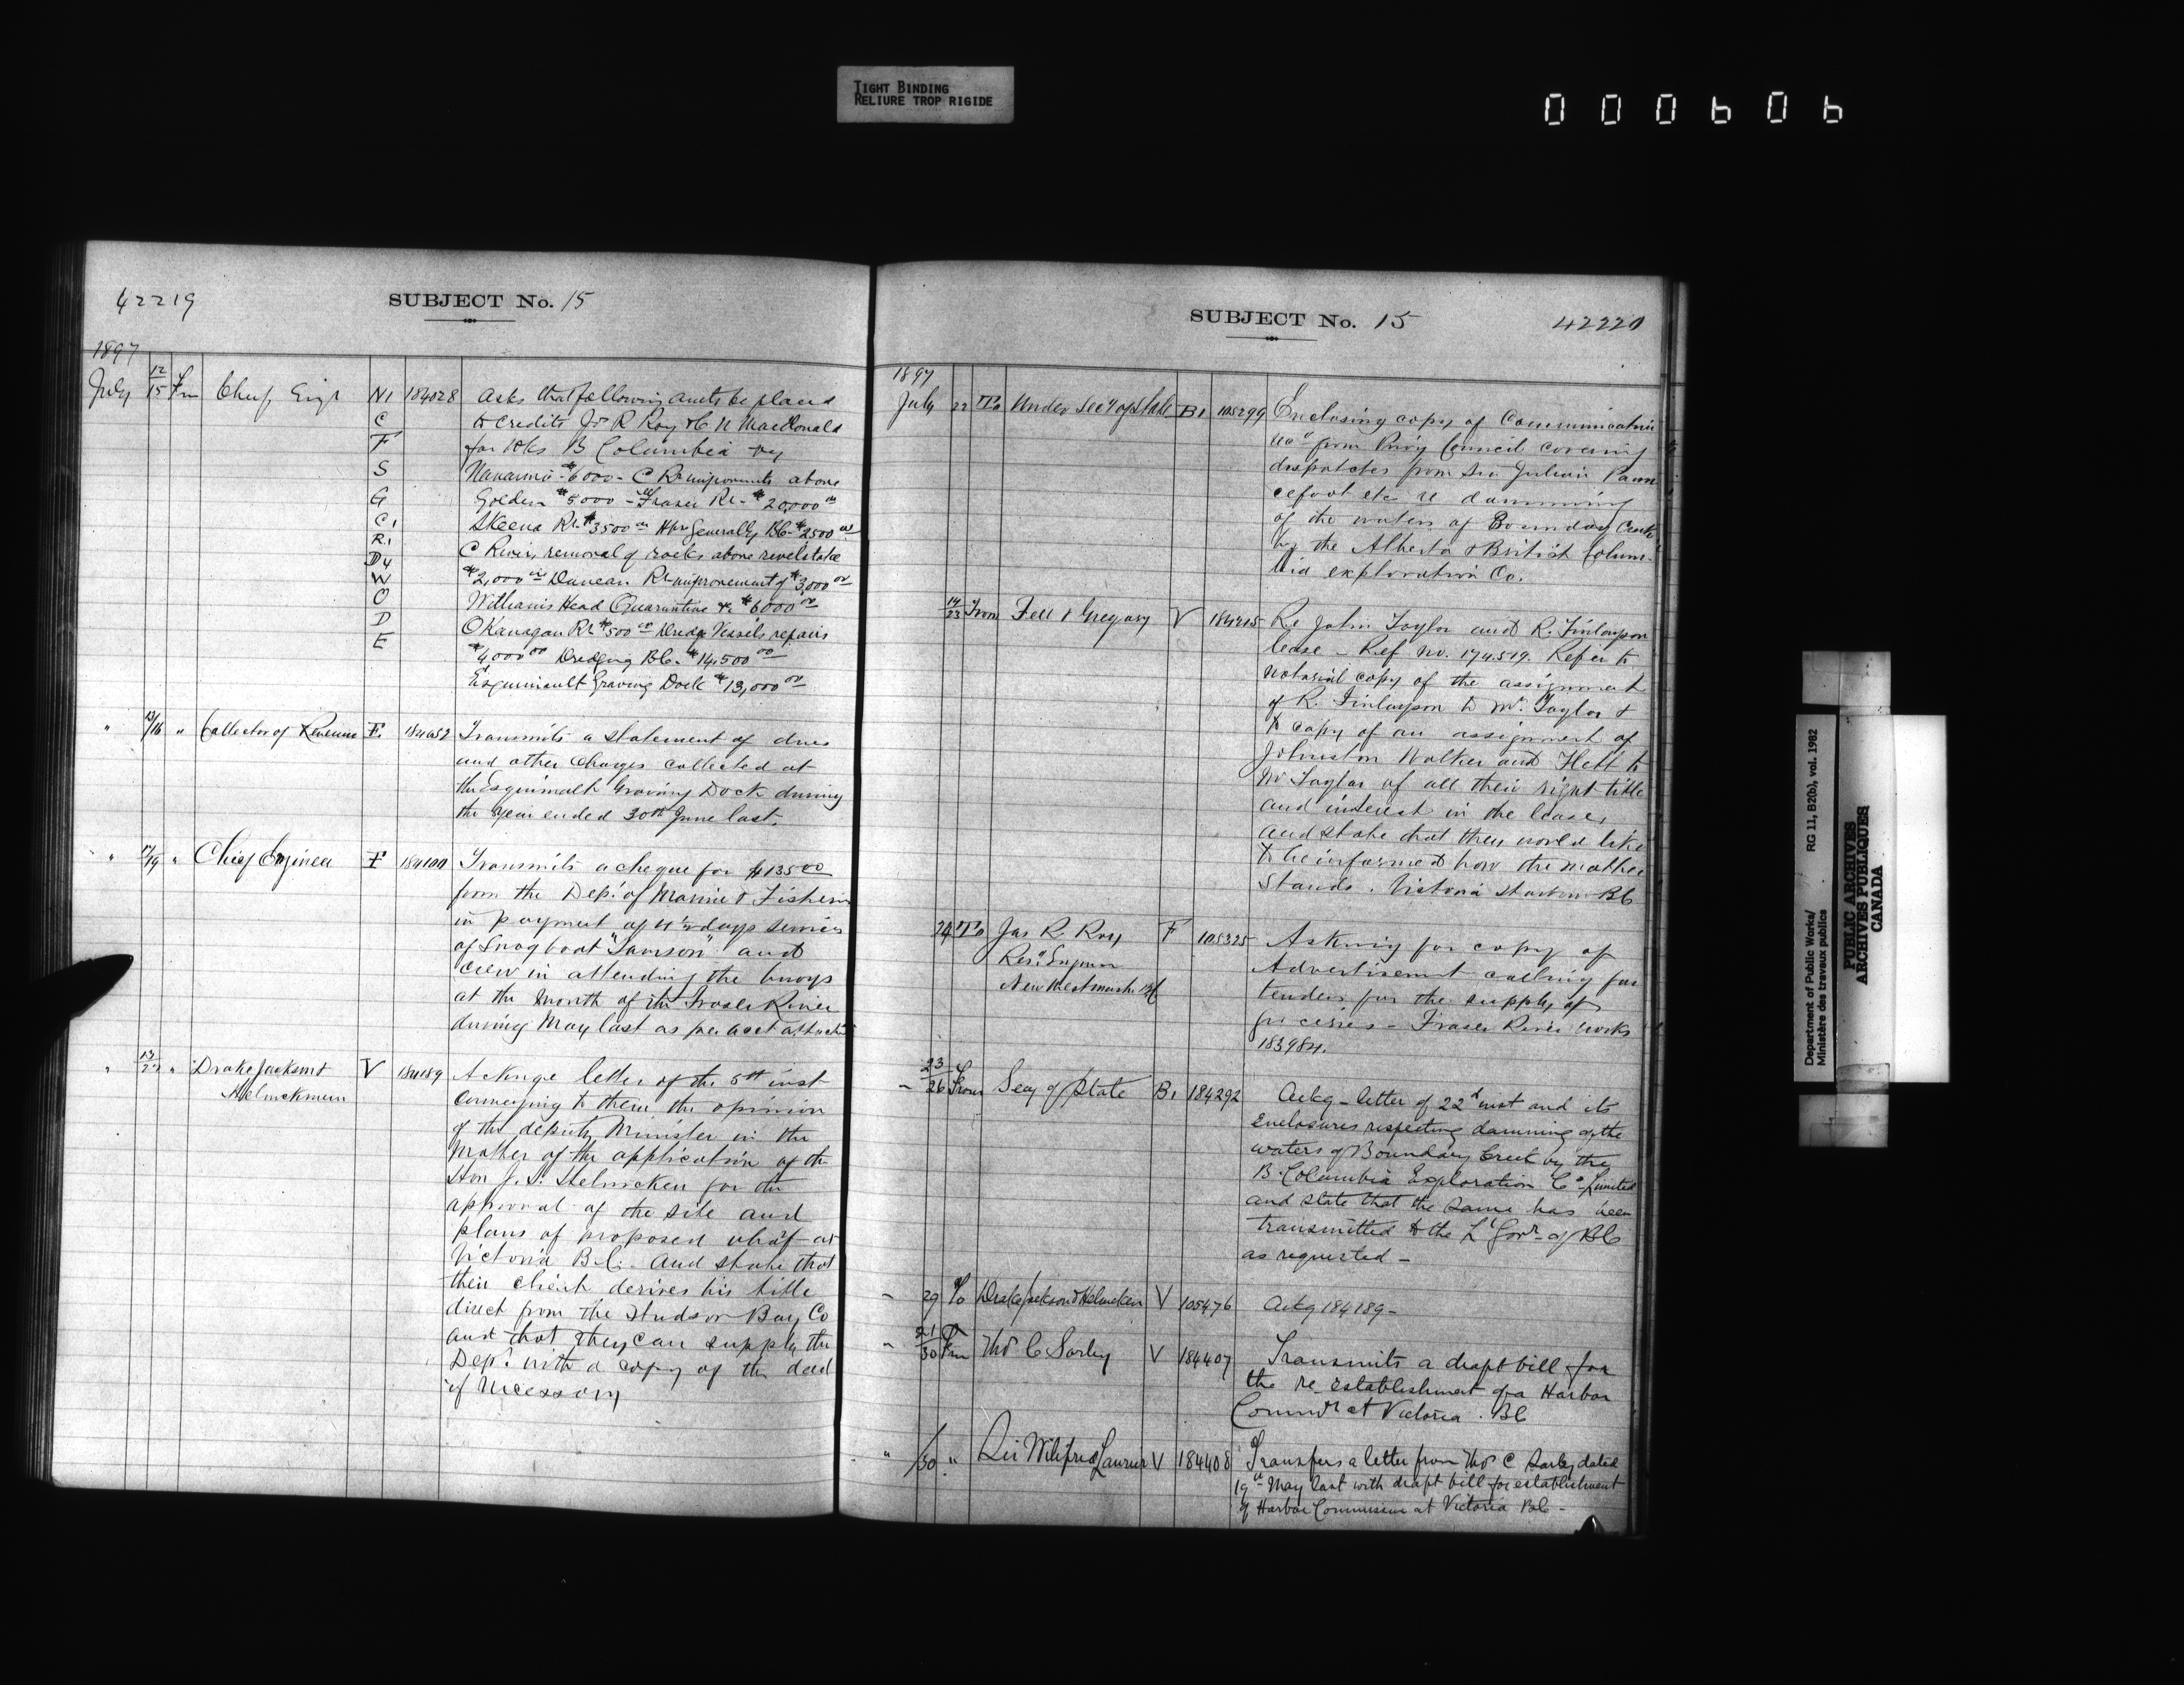 TIGHT BINDING
RELIURE TROP RIGIDE
000606
42219
SUBJECT No. 15
1897
July 12/15 Fm Chief Engr N1 184028 Asks that following amts be placed
C to credits J R Roy & C N MacDonald
F for Wks B Columbia viz
S Nanaimo $6000 - C Rr improvements above
G Golden $5000 - Fraser Rr - $20,000 00
C1 Skeena Rr $3500 00 Hbr Generally BC $2500 00
R1
D4 C River, removal of rocks above revelstoke
W $2,000 00 Duncan Rr improvement of $3,000 00
O Williams Head Quarantine $6000 00
D Okanagan Rr $500 00 Dredge Vessels repairs
E $4000 00 Dredging BC. $14,500 00
Esquimault Graving Dock $13,000 00
" 13/16 " Collector of Revenue F. 184052 Transmits a statement of dues
and other Charges collected at
the Esquimalt Graving Dock during
the year ended 30th June last.
" 17/19 " Chief Engineer F 184100 Transmits a cheque for $135 00
from the Dept of Marine & Fisheries
in payment of 4½ days services
of Snag boat "Samson" and
crew in attending the buoys
at the mouth of the Fraser River
during May last as per acct attached
" 13/22 " Drake Jackson & 
Helmcken V 184189 Acknge letter of the 5th inst
conveying to them the opinion
of the deputy Minister in the
Matter of the application of the
Hon J. S. Helmcken for the
approval of the site and
plans of proposed wharf at
Victoria B.C. And state that
their client derives his title
direct from the Hudson Bay Co
and that they can supply the
Dept with a copy of the deed
if necessary
SUBJECT No. 15
42220
1897
July 22 To Under Secy of State B1 105299 Enclosing copy of Communication
from Privy Council covering
dispatches from Sir Julian Paun
cefoot etc re damming
of the waters of Boundary Creek
by the Alberta & British Colum-
bia exploration Co.
14/23 From Fell & Gregory V 184215 Re John Taylor and R. Finlayson
lease - Ref no. 174519. Refer to
notarial copy of the assignment
of R. Finlayson to Mr. Taylor &
to copy of an assignment of
Johnston Walker and Hett to
Mr Taylor of all their right title
and interest in the lease,
and state that they would like
to be informed how the matter
stands. Victoria Harbour BC
24 To Jas R. Roy F 105325 Asking for copy of
Rest Engineer Advertisement calling for
New Westminster BC tenders for the supply of
groceries - Fraser River works
183984.
23/26 From Secy of State B1 184292 Ackg - letter of 22d inst and its
enclosures respecting damming of the
waters of Boundary Creek by the
B. Columbia Exploration Co Limited
and state that the same has been
transmitted to the Lt Govr of BC
as requested -
29 To Drake Jackson & Helmcken V 105476 Ackg 184189 -
21/30 Fm Thos C Sorby V 184407 Transmits a draft bill for
the re-establishment of a Harbor
Commn at Victoria. BC
" /30 " Sir Wilifred Laurier V 184408 Transfers a letter from Thos C Sorby dated
19th May last with draft bill for establishment
of Harbor Commission at Victoria BC -
Department of Public Works/
Ministère des travaux publics
RG 11, B2(b), vol. 1982
PUBLIC ARCHIVES
ARCHIVES PUBLIQUES
CANADA